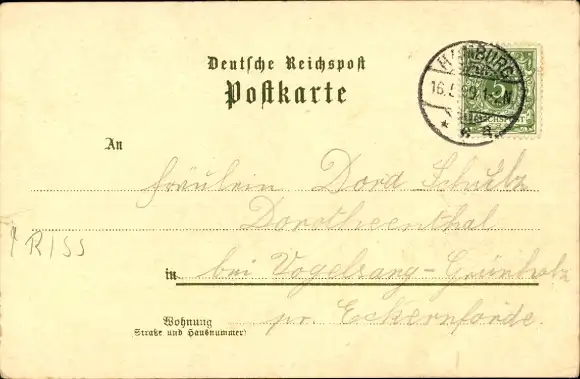 Deutsche Reichspost
Postkarte
HAMBURG
16.5. 1-2.N.
5
REICHSPOST
An
Fräulein Dora Schulz
Dorotheenthal
RISS
in bei Vogelsang-Grünholz
Wohnung
pr. Eckernförde.
Straße und Hausnummer